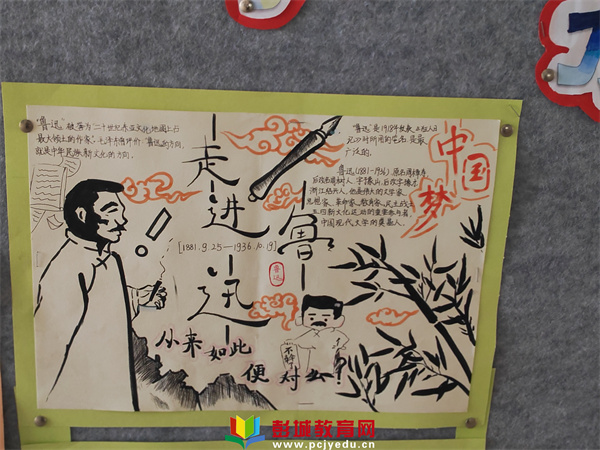 "鲁迅"被誉为"二十世纪东亚文化地图上占
最大领土的作家"。毛泽东曾评价："鲁迅的方向，
就是中华民族新文化的方向。
走进
鲁迅
[1881.9.25—1936.10.19]
鲁迅
"鲁迅"是1918年发表《狂人日
记》时所用的笔名
广泛的。
鲁迅(1881-1936)
浙江绍兴人。
思想家、革命家、教育家、民主战士
五四新文化运动的重要参与者，
中国现代文学的奠基人。
中国
梦
从来如此
便对么？
彭城教育网
www.pcjyedu.cn